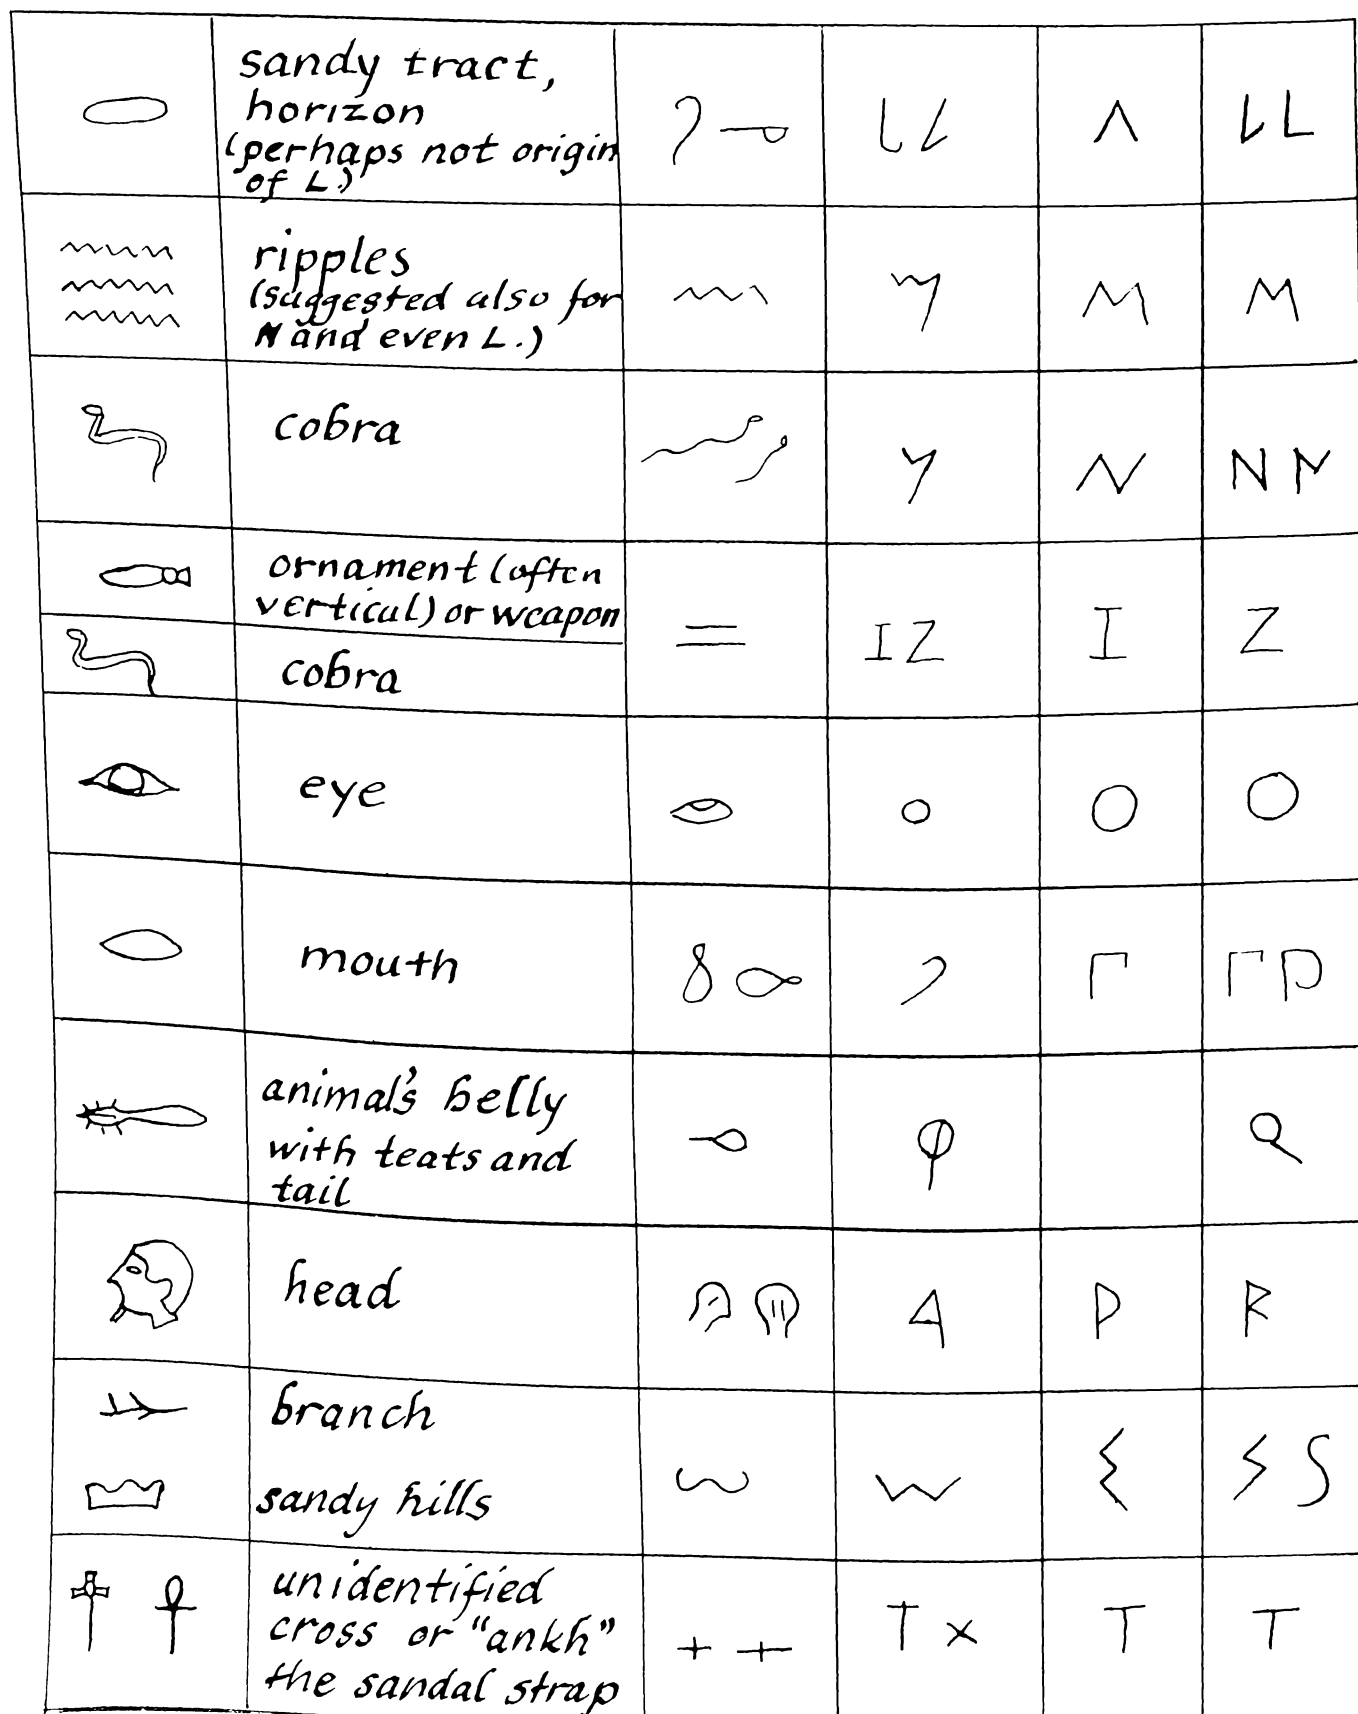 sandy tract,
horizon
(perhaps not origin
of L.)
L L
ripples
(suggested also for
N and even L.)
M M
cobra
N N
ornament (often
vertical) or weapon
I Z I Z
cobra
eye
O O O
mouth
animal's belly
with teats and
tail
Q
head
P R
branch
S
sandy hills
unidentified
cross or "ankh"
the sandal strap
T x T T